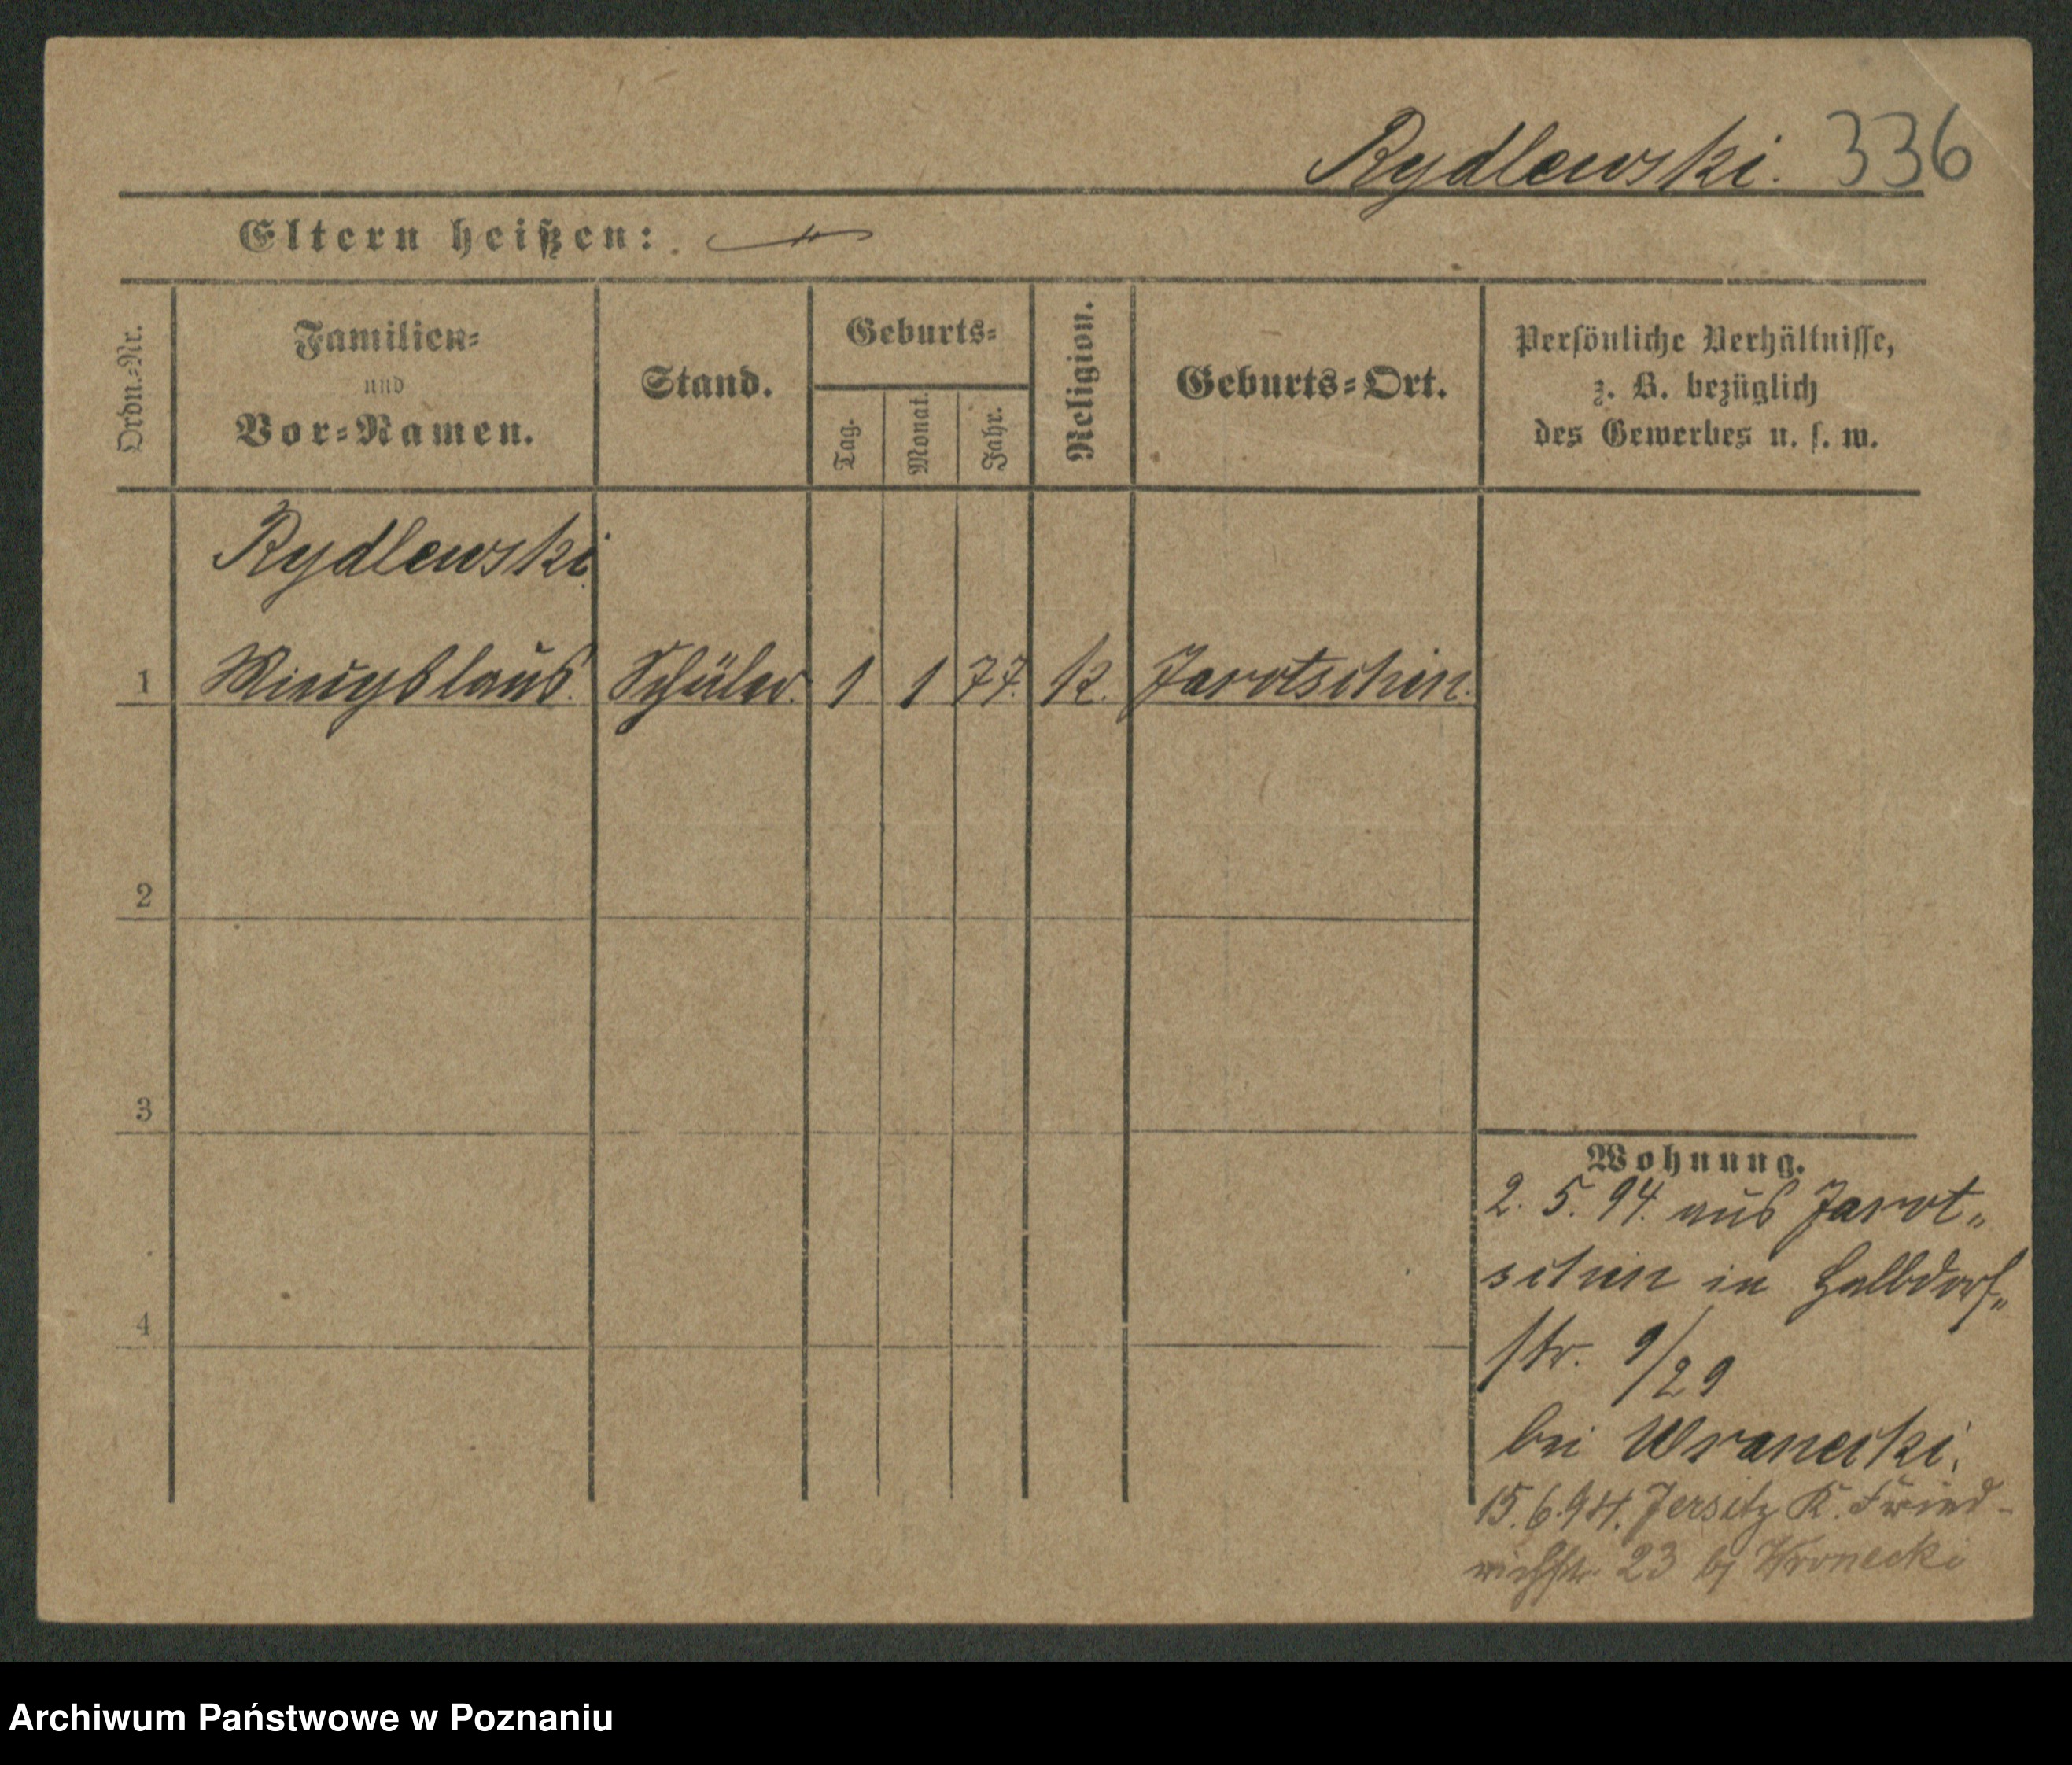 Rydlewski. 336
Eltern heißen: — " —
Ordn.-Nr.
Familien-
und
Vor-Namen.
Stand.
Geburts-
Tag.
Monat.
Jahr.
Religion.
Geburts-Ort.
Persönliche Verhältnisse,
z. B. bezüglich
des Gewerbes u. s. w.
Rydlewski
1 Schüler. 1 1 77. k. Jarotschin.
2
3
4
Wohnung.
2. 5. 94. aus Jarot-
schin in Halbdorf-
str. 9/29
bei Wronecki.
15.6.94. Jersitz K. Fried-
richstr. 23 bj Wronecki
Archiwum Państwowe w Poznaniu